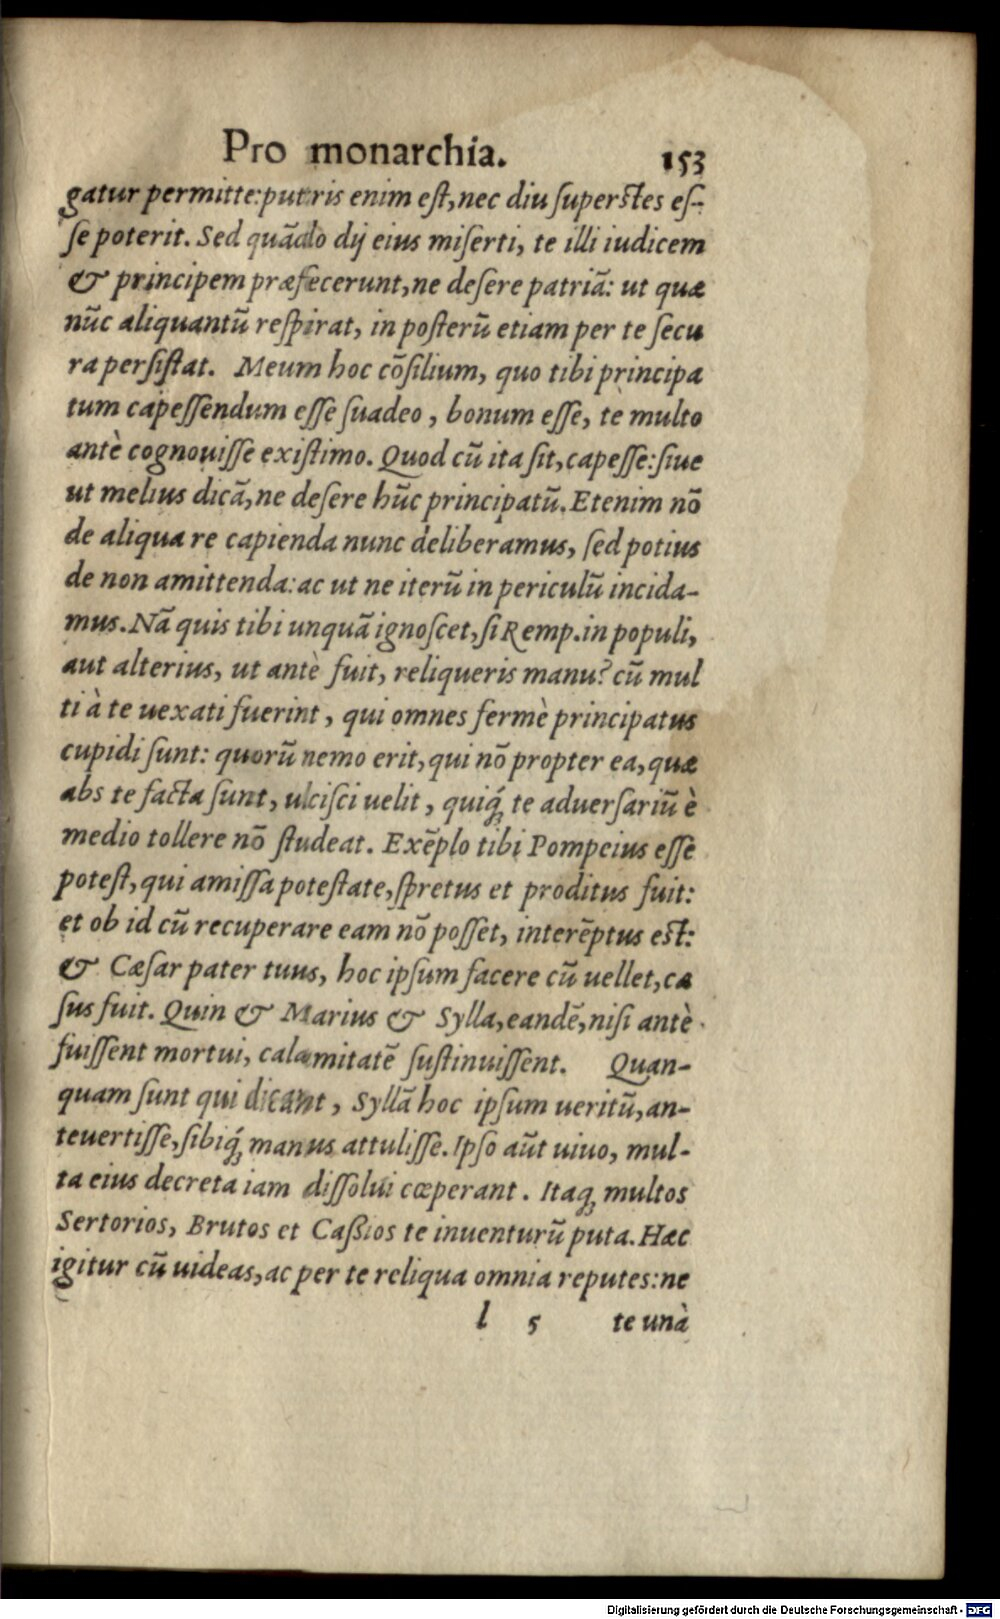 Pro monarchia. 153
gatur permitte: putris enim est, nec diu superstes es-
se poterit. Sed quãdo dij eius miserti, te illi iudicem
& principem præfecerunt, ne desere patriã: ut quæ
nũc aliquantũ respirat, in posterũ etiam per te secu
ra persistat. Meum hoc cõsilium, quo tibi principa
tum capessendum esse suadeo, bonum esse, te multo
antè cognouisse existimo. Quod cũ ita sit, capesse: siue
ut melius dicã, ne desere hũc principatũ. Etenim nõ
de aliqua re capienda nunc deliberamus, sed potius
de non amittenda: ac ut ne iterũ in periculũ incida-
mus. Nã quis tibi unquã ignoscet, si Remp. in populi,
aut alterius, ut antè fuit, reliqueris manu? cũ mul
ti à te uexati fuerint, qui omnes fermè principatus
cupidi sunt: quorũ nemo erit, qui nõ propter ea, quæ
abs te facta sunt, ulcisci uelit, quiq́; te aduersariũ è
medio tollere nõ studeat. Exẽplo tibi Pompeius esse
potest, qui amissa potestate, spretus et proditus fuit:
et ob id cũ recuperare eam nõ posset, interẽptus est:
& Cæsar pater tuus, hoc ipsum facere cũ uellet, cæ
sus fuit. Quin & Marius & Sylla, eandẽ, nisi antè
fuissent mortui, calamitatẽ sustinuissent. Quan-
quam sunt qui dicant, Syllã hoc ipsum ueritũ, an-
teuertisse, sibiq́; manus attulisse. Ipso aũt uiuo, mul-
ta eius decreta iam dissolui cœperant. Itaq; multos
Sertorios, Brutos et Caßios te inuenturũ puta. Hæc
igitur cũ uideas, ac per te reliqua omnia reputes: ne
l 5 te unà
Digitalisierung gefördert durch die Deutsche Forschungsgemeinschaft - DFG